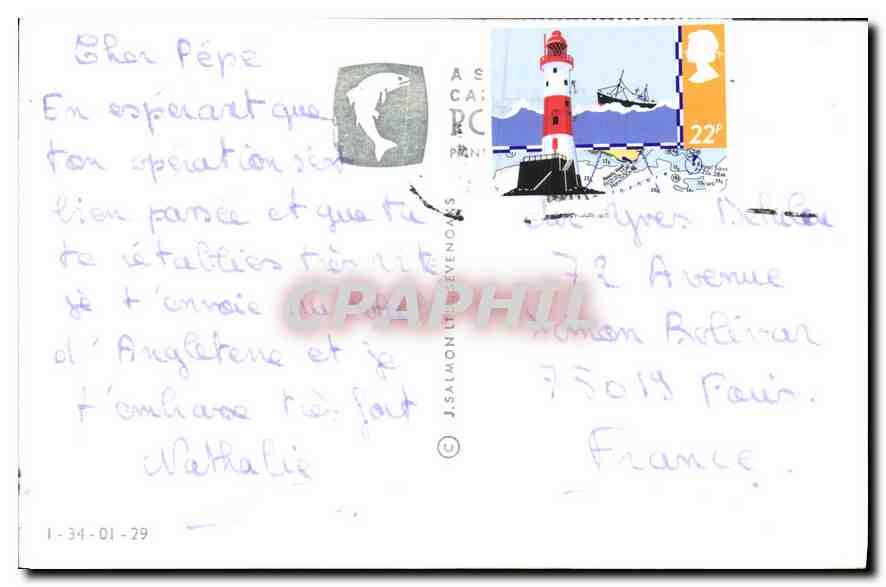 Cher Pépé
En espérant que
ton opération s'est
bien passée et que tu
te rétablies très vite
je t'envoie
d'Angleterre et je
t'embrasse très fort
Nathalie
1-34-01-29
© J. SALMON LTD. SEVENOAKS
A S
CA
PO
22P
Yves
72 Avenue
Simon Bolivar
75019 Paris.
France.
CPAPHIL